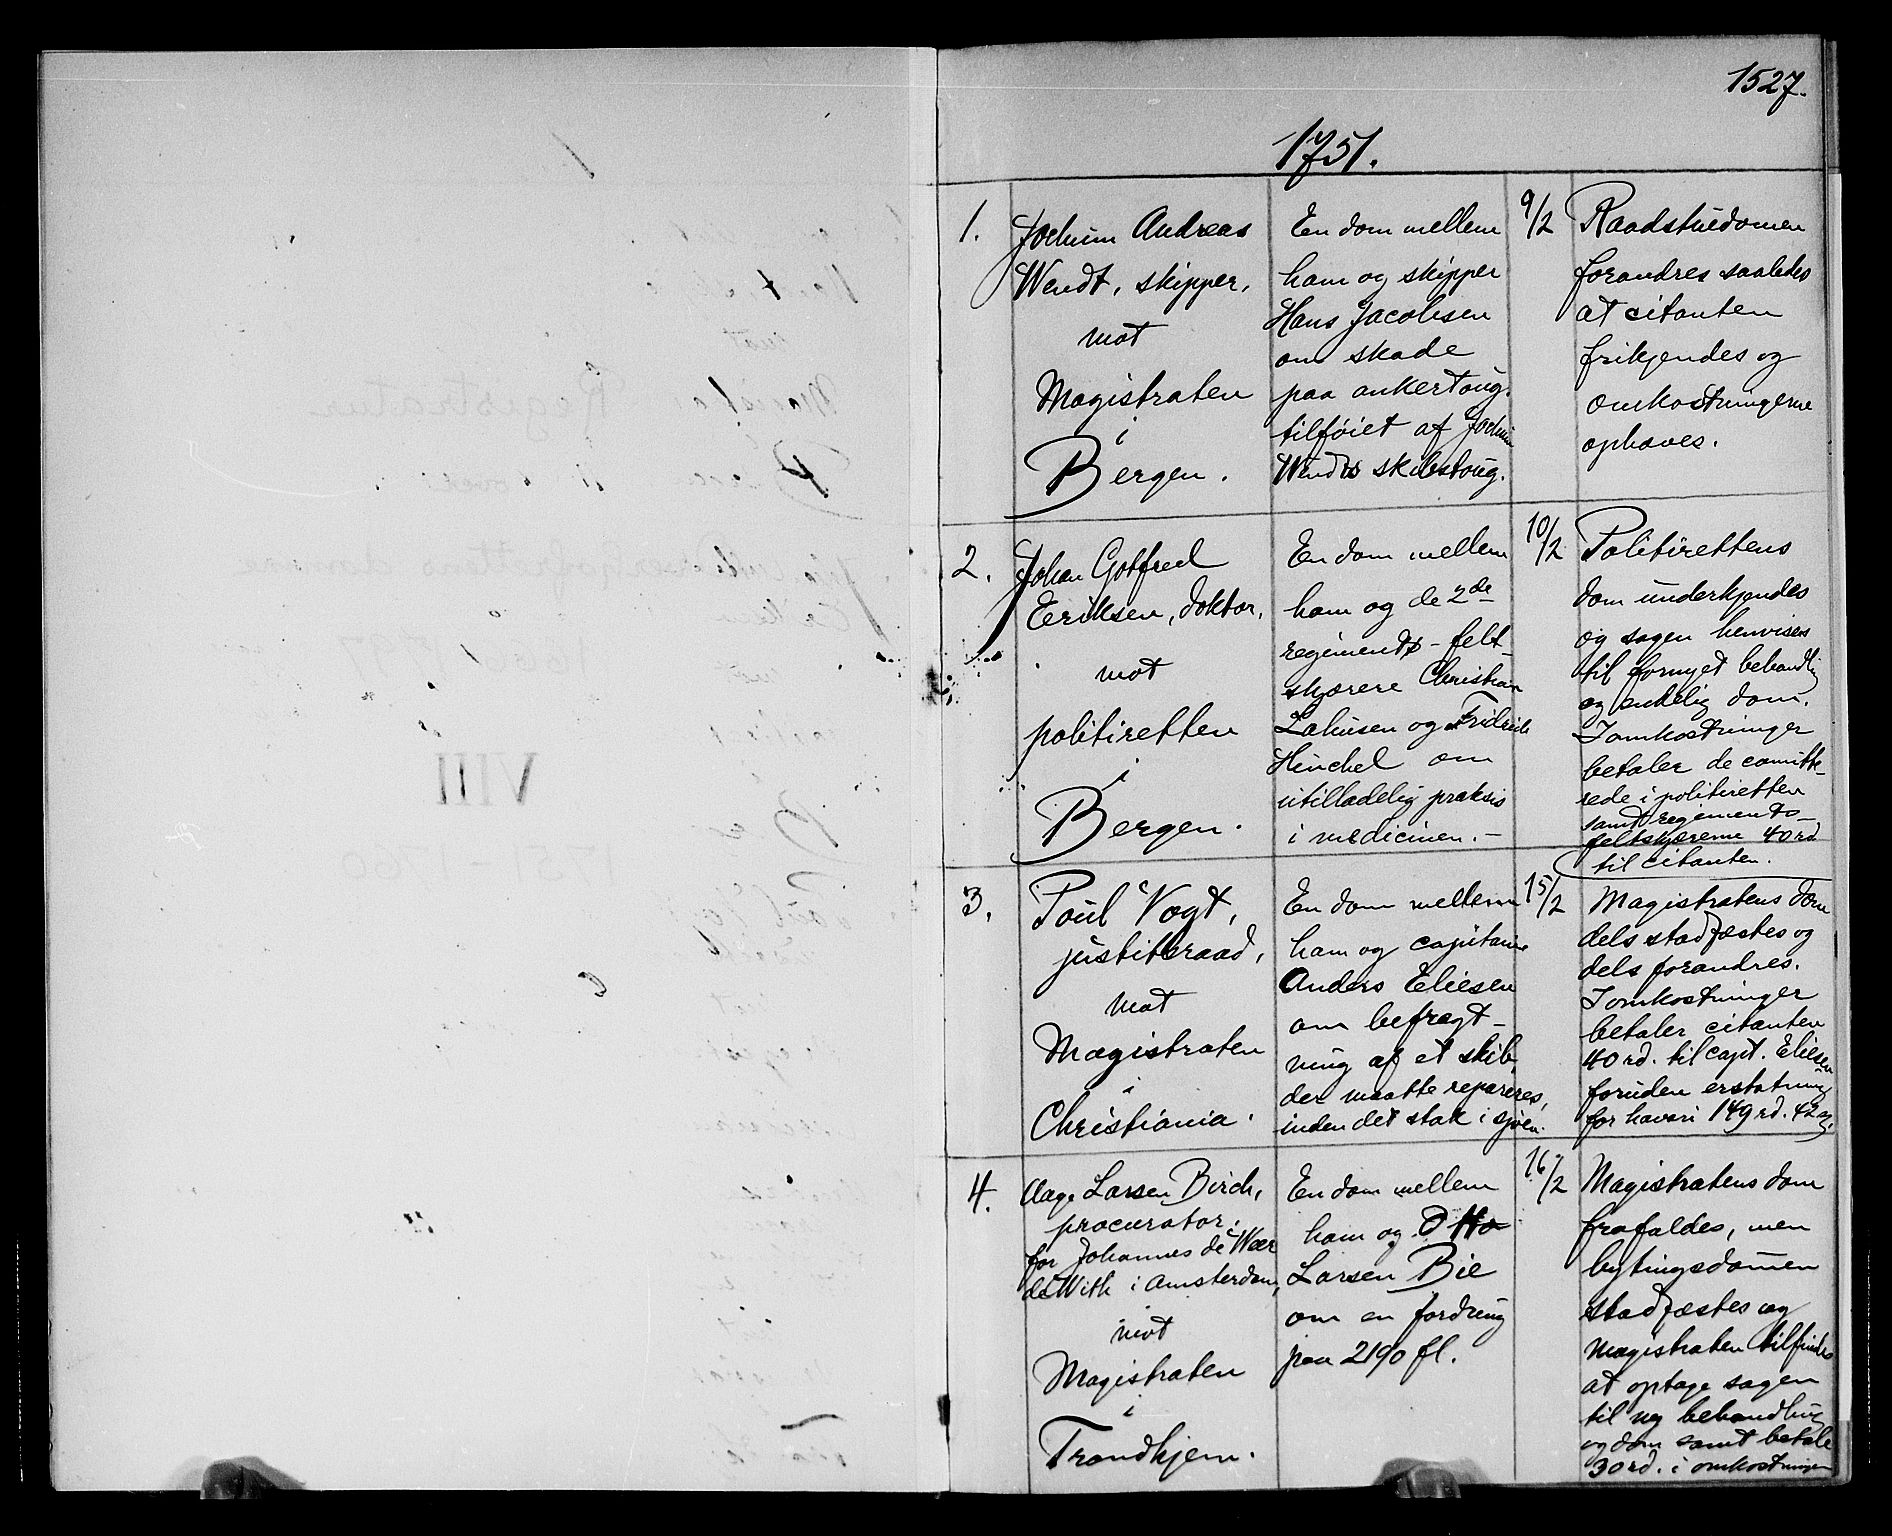 1527.
1751.
1.
Jochum Andreas
Wendt, skipper,
mot
Magistraten
i
Bergen.
En dom mellem
ham og skipper
Hans Jacobsen
om skade
paa ankertoug.
tilføiet af Jochum
Wendts skibstoug.
9/2
Raadstuedomen
forandres saaledes
at citanten
frikjendes og
omkostningerne
ophæves.
2.
Johan Gotfred
Eriksen, doktor,
mot
politiretten
i
Bergen.
En dom mellem
ham og de 2de
regiments-felt-
skjærere Christian
Lahusen og Fridrich
Hinchel om
utilladelig praksis
i medicinen.-
10/2
Politirettens
dom underkjendes
og sagen henvises
til fornyet behandlig
og endelig dom.
I omkostninger
betaler de comitte-
rede i politiretten
samt regiments-
feltskjærerne 40 rd
til citanten.
3.
Poul Vogt,
justitsraad,
mot
Magistraten
i
Christiania.
En dom mellem
ham og capitaine
Anders Eliesen
om befragt-
ning af et skib,
der maatte repareres,
inden det stak i sjøen.
15/2
Magistratens dom
dels stadfæstes og
dels forandres.
I omkostninger
betaler citanten
40 rd. til capt. Eliesen
foruden erstatning
for havari 149 rd. 42
4.
Aage Larsen Birch,
procurator,
for Johannes de Wær
de With i Amsterdam,
mot
Magistraten
i
Trondhjem.
En dom mellem
ham og Otto
Larsen Bie
om en fordring
paa 2190 fl.
16/2
Magistratens dom
frafaldes, men
bytingsdommen
stadfæstes og
magistraten tilfindes
at optage sagen
til ny behandling
og dom samt betale
30 rd. i omkostninger
VIII